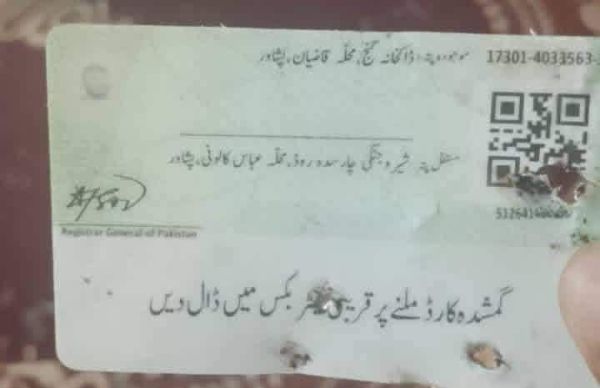 موجودہ پتہ: ڈاکخانہ گنج, محلّہ قاضیان, پشاور
17301-4033563-
مستقل پتہ: شیرو جنگی چارسدہ روڈ, محلہ عباس کالونی, پشاور
Registrar General of Pakistan
گمشدہ کارڈ ملنے پر قریبی بکس میں ڈال دیں